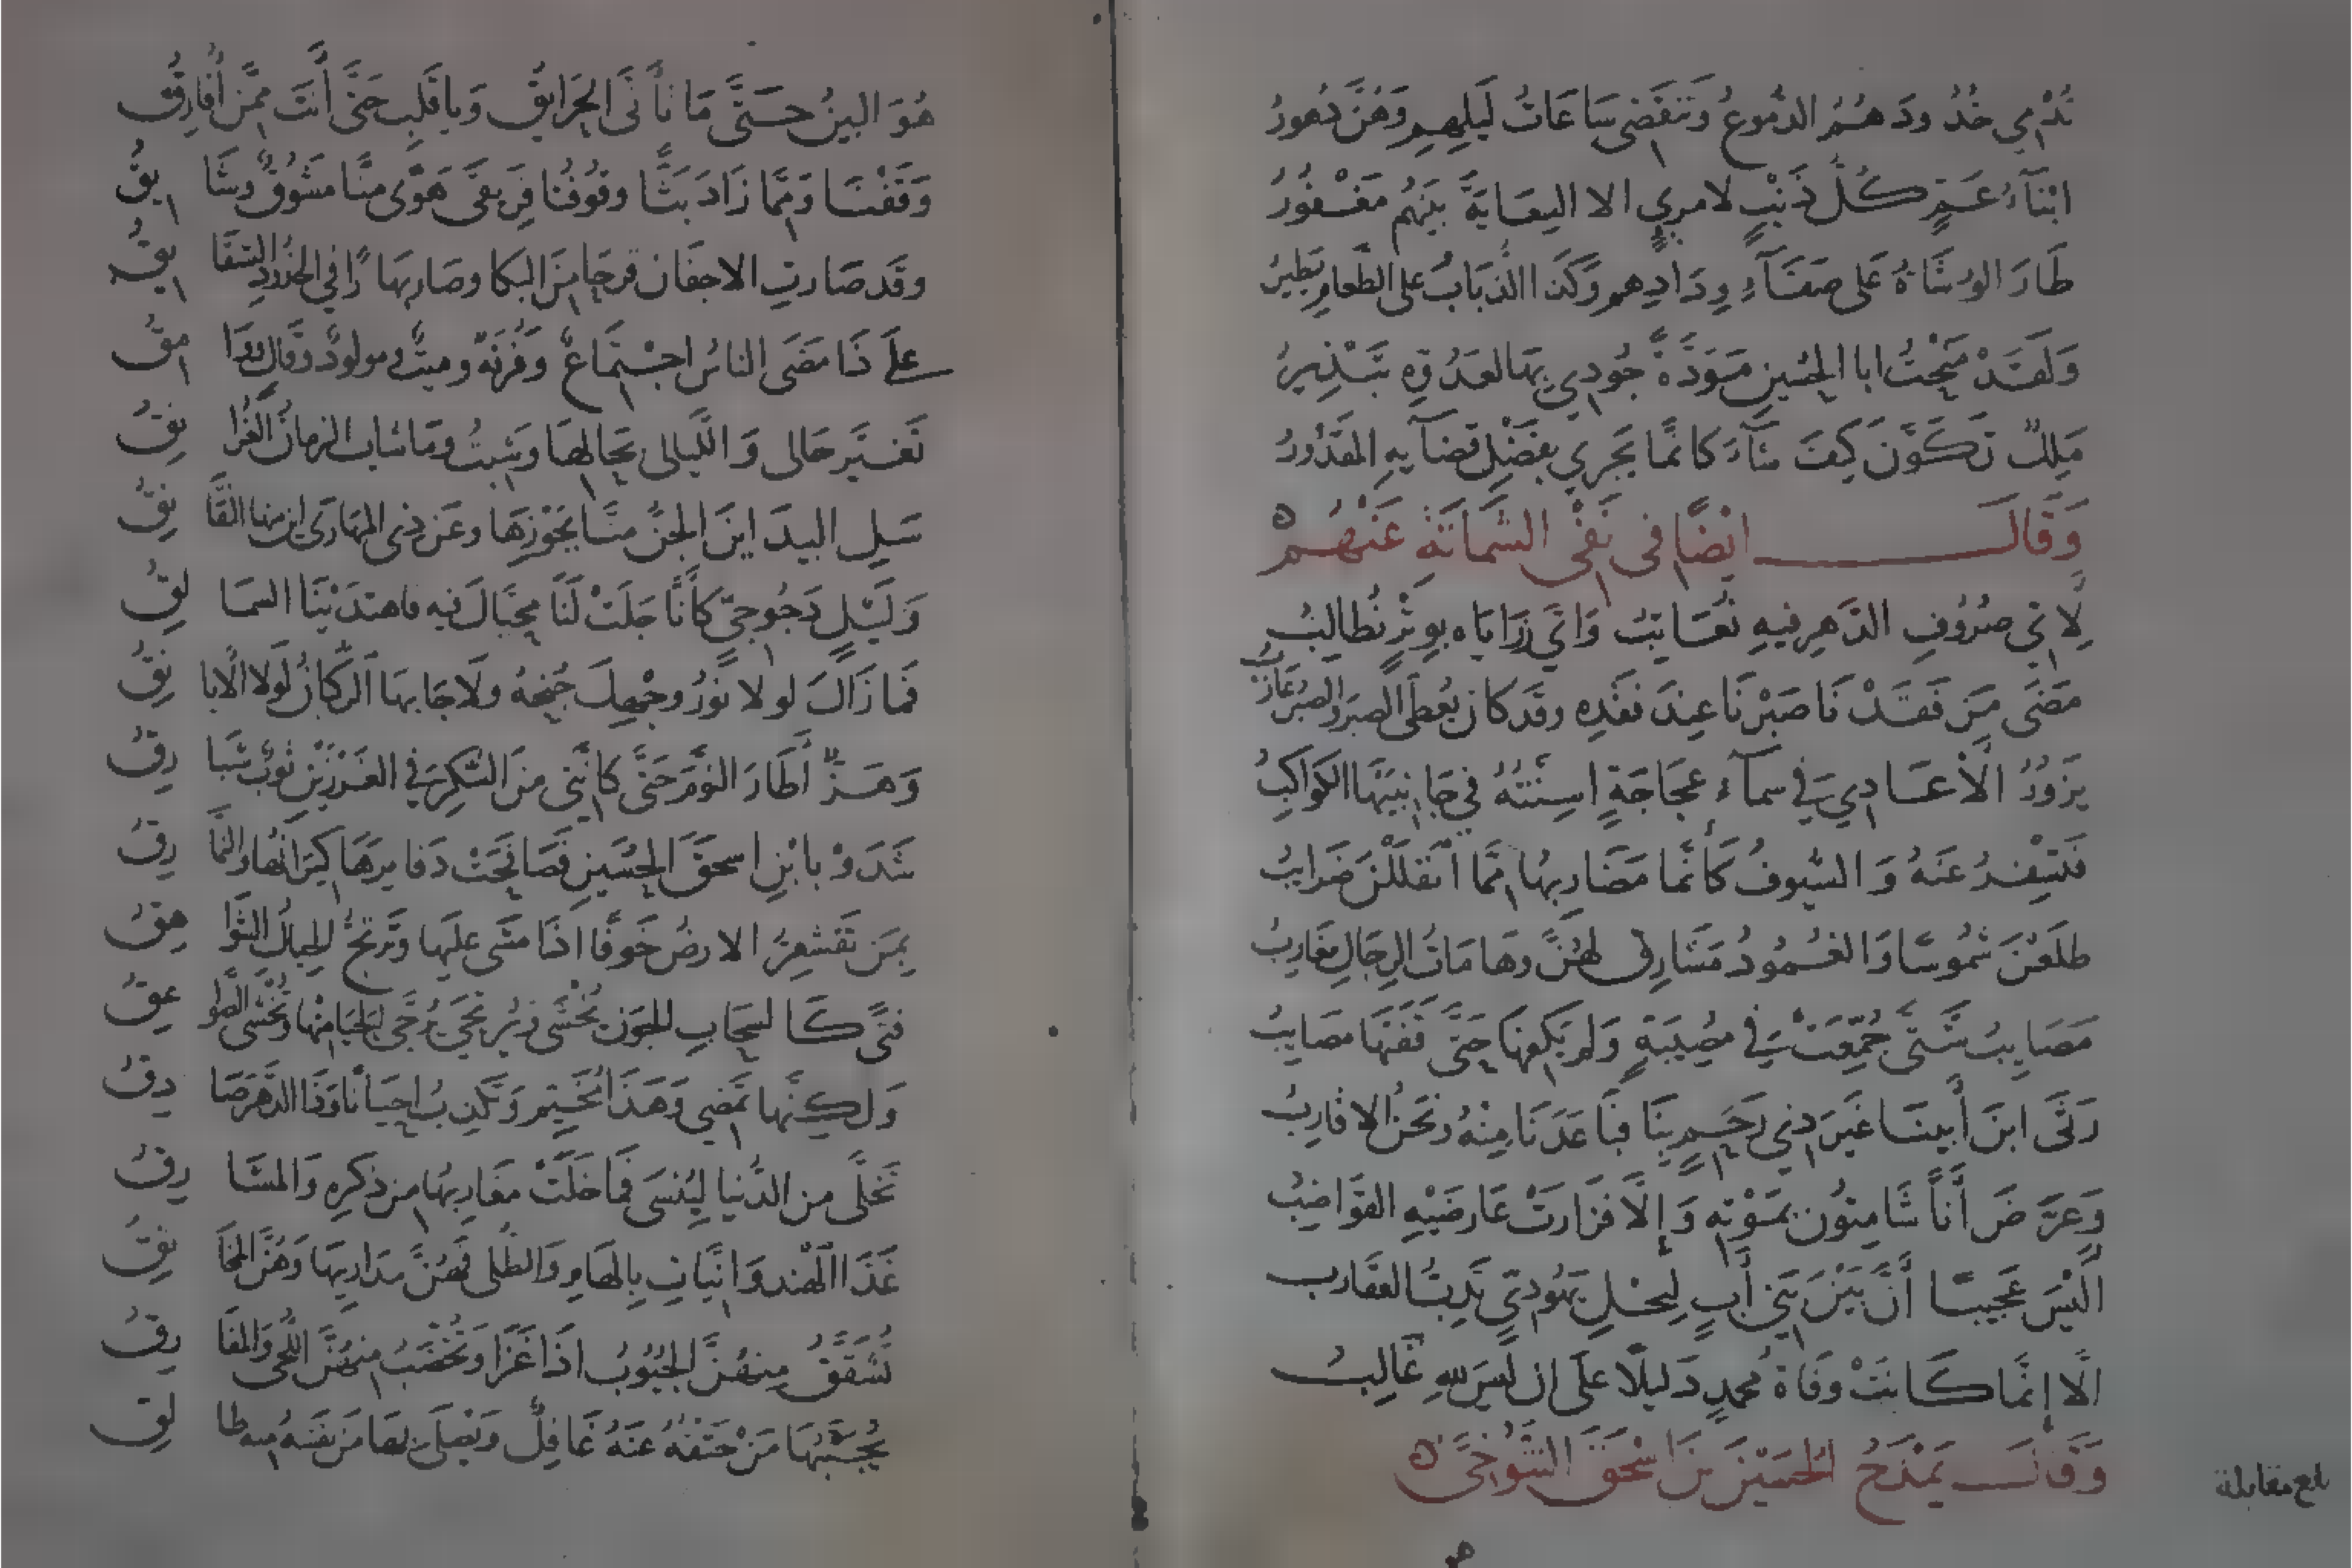 تُدْمِي خُدُودَهُمُ الدُّموعُ وَتَنقَضي سَاعَاتُ لَيلِهِم وَهُنَّ دُهورُ
ابْنَآءُ عَمٍّ كُلُّ ذَنْبٍ لامرِئٍ الا السِعَايَةَ بَينَهُم مَغْفُورُ
طَارَ الوُشَاةُ عَلى صَفَآءِ وِدَادِهِم وَكَذَا الذُبَابُ على الطَّعامِ يَطيرُ
وَلَقَدْ مَنَحْتُ ابا الحُسَينِ مَوَدَّةً جُودِي بهَا لعَدُوِّهِ تَبْذِيرُ
مَلِكٌ تَكَوَّنَ كيفَ شَآءَ كَانَّمَا يَجرِي بفَضْلِ قَضَآيِهِ المَقْدُورُ
وَقَالَ ايْضًا في نَفْي الشَّمَاتَةِ عَنْهُمْ
لِايِّ صُرُوفِ الدَّهرِ فيهِ نُعَاتِبُ وَايَّ رَزَايَاه بوِتْرٍ نُطالِبُ
مَضَى مَن فَقَدْنَا صَبْرَنَا عِندَ فَقْدِهِ وقَد كان يُعطى الصبرَ والصبرُ عَازِبُ
يَزُورُ الْأعَادِي في سمآءِ عجَاجَةٍ اسِنَّتُهُ في جَانبَيْهَا الكَوَاكِبُ
فَتَسْفِرُ عَنهُ وَالسُّيوفُ كَأنَّما مَضَارِبهُا مِمَّا انْفَلَلْنَ ضَرايبُ
طلَعْنَ شُمُوسًا وَالغُمُودُ مَشَارِقٌ لهُنَّ وهَامَاتُ الرِجَالِ مَغَارِبُ
مَصَايبُ شَتَّى جُمِّعَتْ في مصُيبَةٍ وَلم يَكفِهَا حَتَّى قَفَتْهَا مَصَايبُ
رَثَى ابنَ أبينَا غَيرُ ذي رَحِمٍ بنَا فبَاعَدَنَا مِنْهُ ونَحْنُ الاقَارِبُ
وَعَرَّضَ أنَّا شَامِتُون بمَوْتِهِ وَإلَّا فزَارَتْ عَارضَيْهِ القَوَاضِبُ
الَيْسَ عَجيبًا أنَّ بَيْنَ بَني أبٍ لنِجْلِ يَهُودِيٍّ تَدِبُّ العقَارب
الَا إنمَّا كَانَتْ وَفَاةُ محمدٍ دَليلًا عَلَى ان لَيسَ للهِ غَالِبُ
وَقَالَ يَمْدَحُ الحُسَيْنَ بنَ اسْحَقَ التَّنُوخيَّ
بلغ مقابلة
هُوَ البَينُ حَتَّى مَا تَأَنَّى الحَزايقُ وَيا قَلبِ حَتَّى أَنتَ مِمَّن أُفَارِقُ
وَقَفْنَا وَمِمَّا زَادَ بَثًّا وقُوفُنا فَرِيقَي هَوًى منَّا مَشُوقٌ وشَايقُ
وقَد صَارتِ الاجفَان قَرحَى منَ البكا وصَار بهَارًا في الخدُودِ الشقَايقُ
عَلَى ذَا مَضَى الناسُ اجْتِمَاعٌ وَفُرقَةٌ وميتٌ ومولودٌ وقَالٍ ووَامقُ
تَغيَّر حَالى وَاللَّيالى بحَالهَا وَشبتُ ومَا شابَ الزمانُ الغُرَانِقُ
سَلِ البيدَ اينَ الجِنُّ مِنَّا بجَوْزِهَا وعَن ذي المهَارَى اين منها النَّقَانِقُ
وَلَيْلٍ دَجُوجِيٍّ كَأنَّا جَلَتْ لَنَا مُحيَّاكَ فيه فاهتدَيْنَا السَّمَالِقُ
فمَا زَالَ لولا نُورُ وجْهِكَ جُنحُهُ ولَا جَابهَا الرُّكبَانُ لَولا الأيانِقُ
وَهَزٌّ أطَارَ النَّومَ حَتَّى كانَّني منَ السُّكرِ في الغَرْزَيْنِ ثَوبٌ شُبَارِقُ
شَدَوْا بابْنِ اسحَقَ الحُسَينِ فصَافَحَتْ ذَفاريهَا كيرَانُها والنَّمَارِقُ
بمَن تَقشَعِرُّ الارضُ خَوفًا اذَا مَشَى عَليهَا وَتَرتَجُّ الجِبالُ الشَّوَاهقُ
فتًى كَالسَّحَابِ الجُون يُخشَى ويُرتجَى يُرَجَّى الحَيَا منْهَا وتُخشَى الصَّوَاعِقُ
وَلكِنَّها تَمضي وَهَذَا مُخَيِّم وَتَكذِبُ احيَانًا وَذَا الدَّهرَ صَادِقُ
تَخَلَّى من الدُّنيا ليُنسَى فمَا خَلَتْ مغَارِبهُا من ذِكرِهِ وَالمشَارِقُ
غَذَا الهُندوَانيَّاتِ بالهَامِ وَالطُّلَى فهُنَّ مدَارِيهَا وَهُنَّ المخَانِقُ
تُشَقَّقُ منهُنَّ الجُيُوبُ اذَا غَزَا وَتُخْضَبُ منهُنَّ اللِّحَى وَالمفَارِقُ
يُجَنَّبُهَا مَنْ حَتْفُهُ عَنهُ غَافِلٌ وَيَصلَى بهَا مَن نَفسُهُ منه طَالِقُ